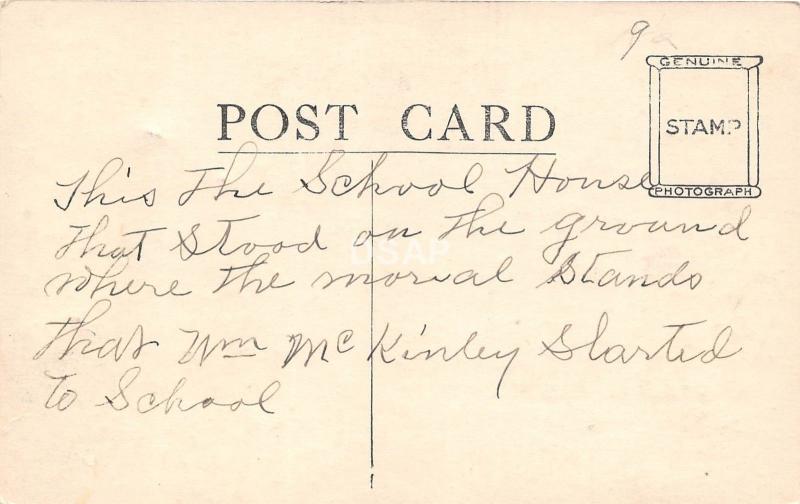 9a
GENUINE
STAMP
PHOTOGRAPH
POST CARD
This The School House
that Stood on The ground
where the morial Stands
that Wm McKinley Started
To School
USAP